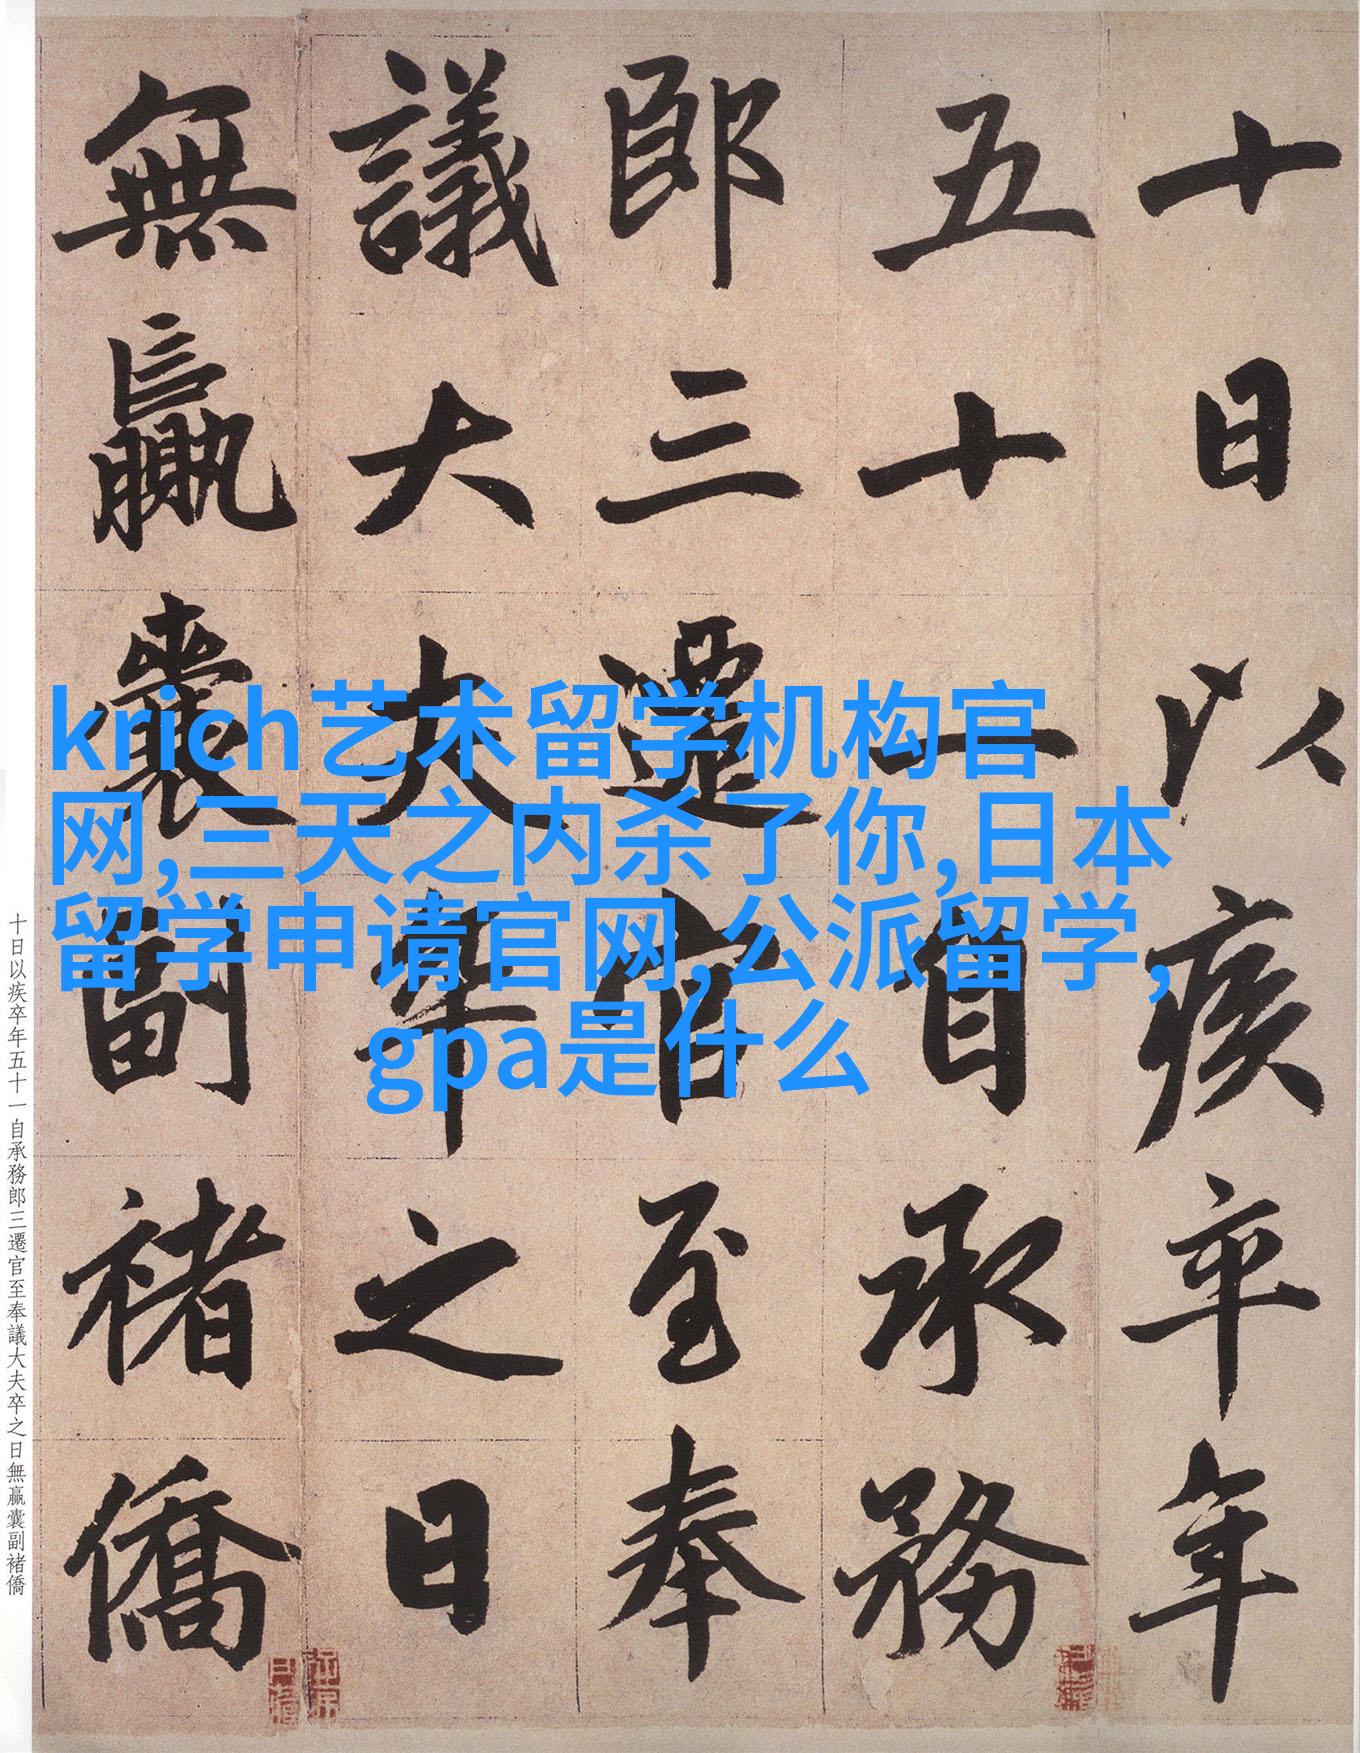 十日以疾卒年
五十一自承務
郎三遷官至奉
議大夫卒之日
無贏囊副褚僑
krich艺术留学机构官
网,三天之内杀了你,日本
留学申请官网,公派留学,
gpa是什么
十日以疾卒年五十一自承務郎三遷官至奉議大夫卒之日無贏囊副褚僑